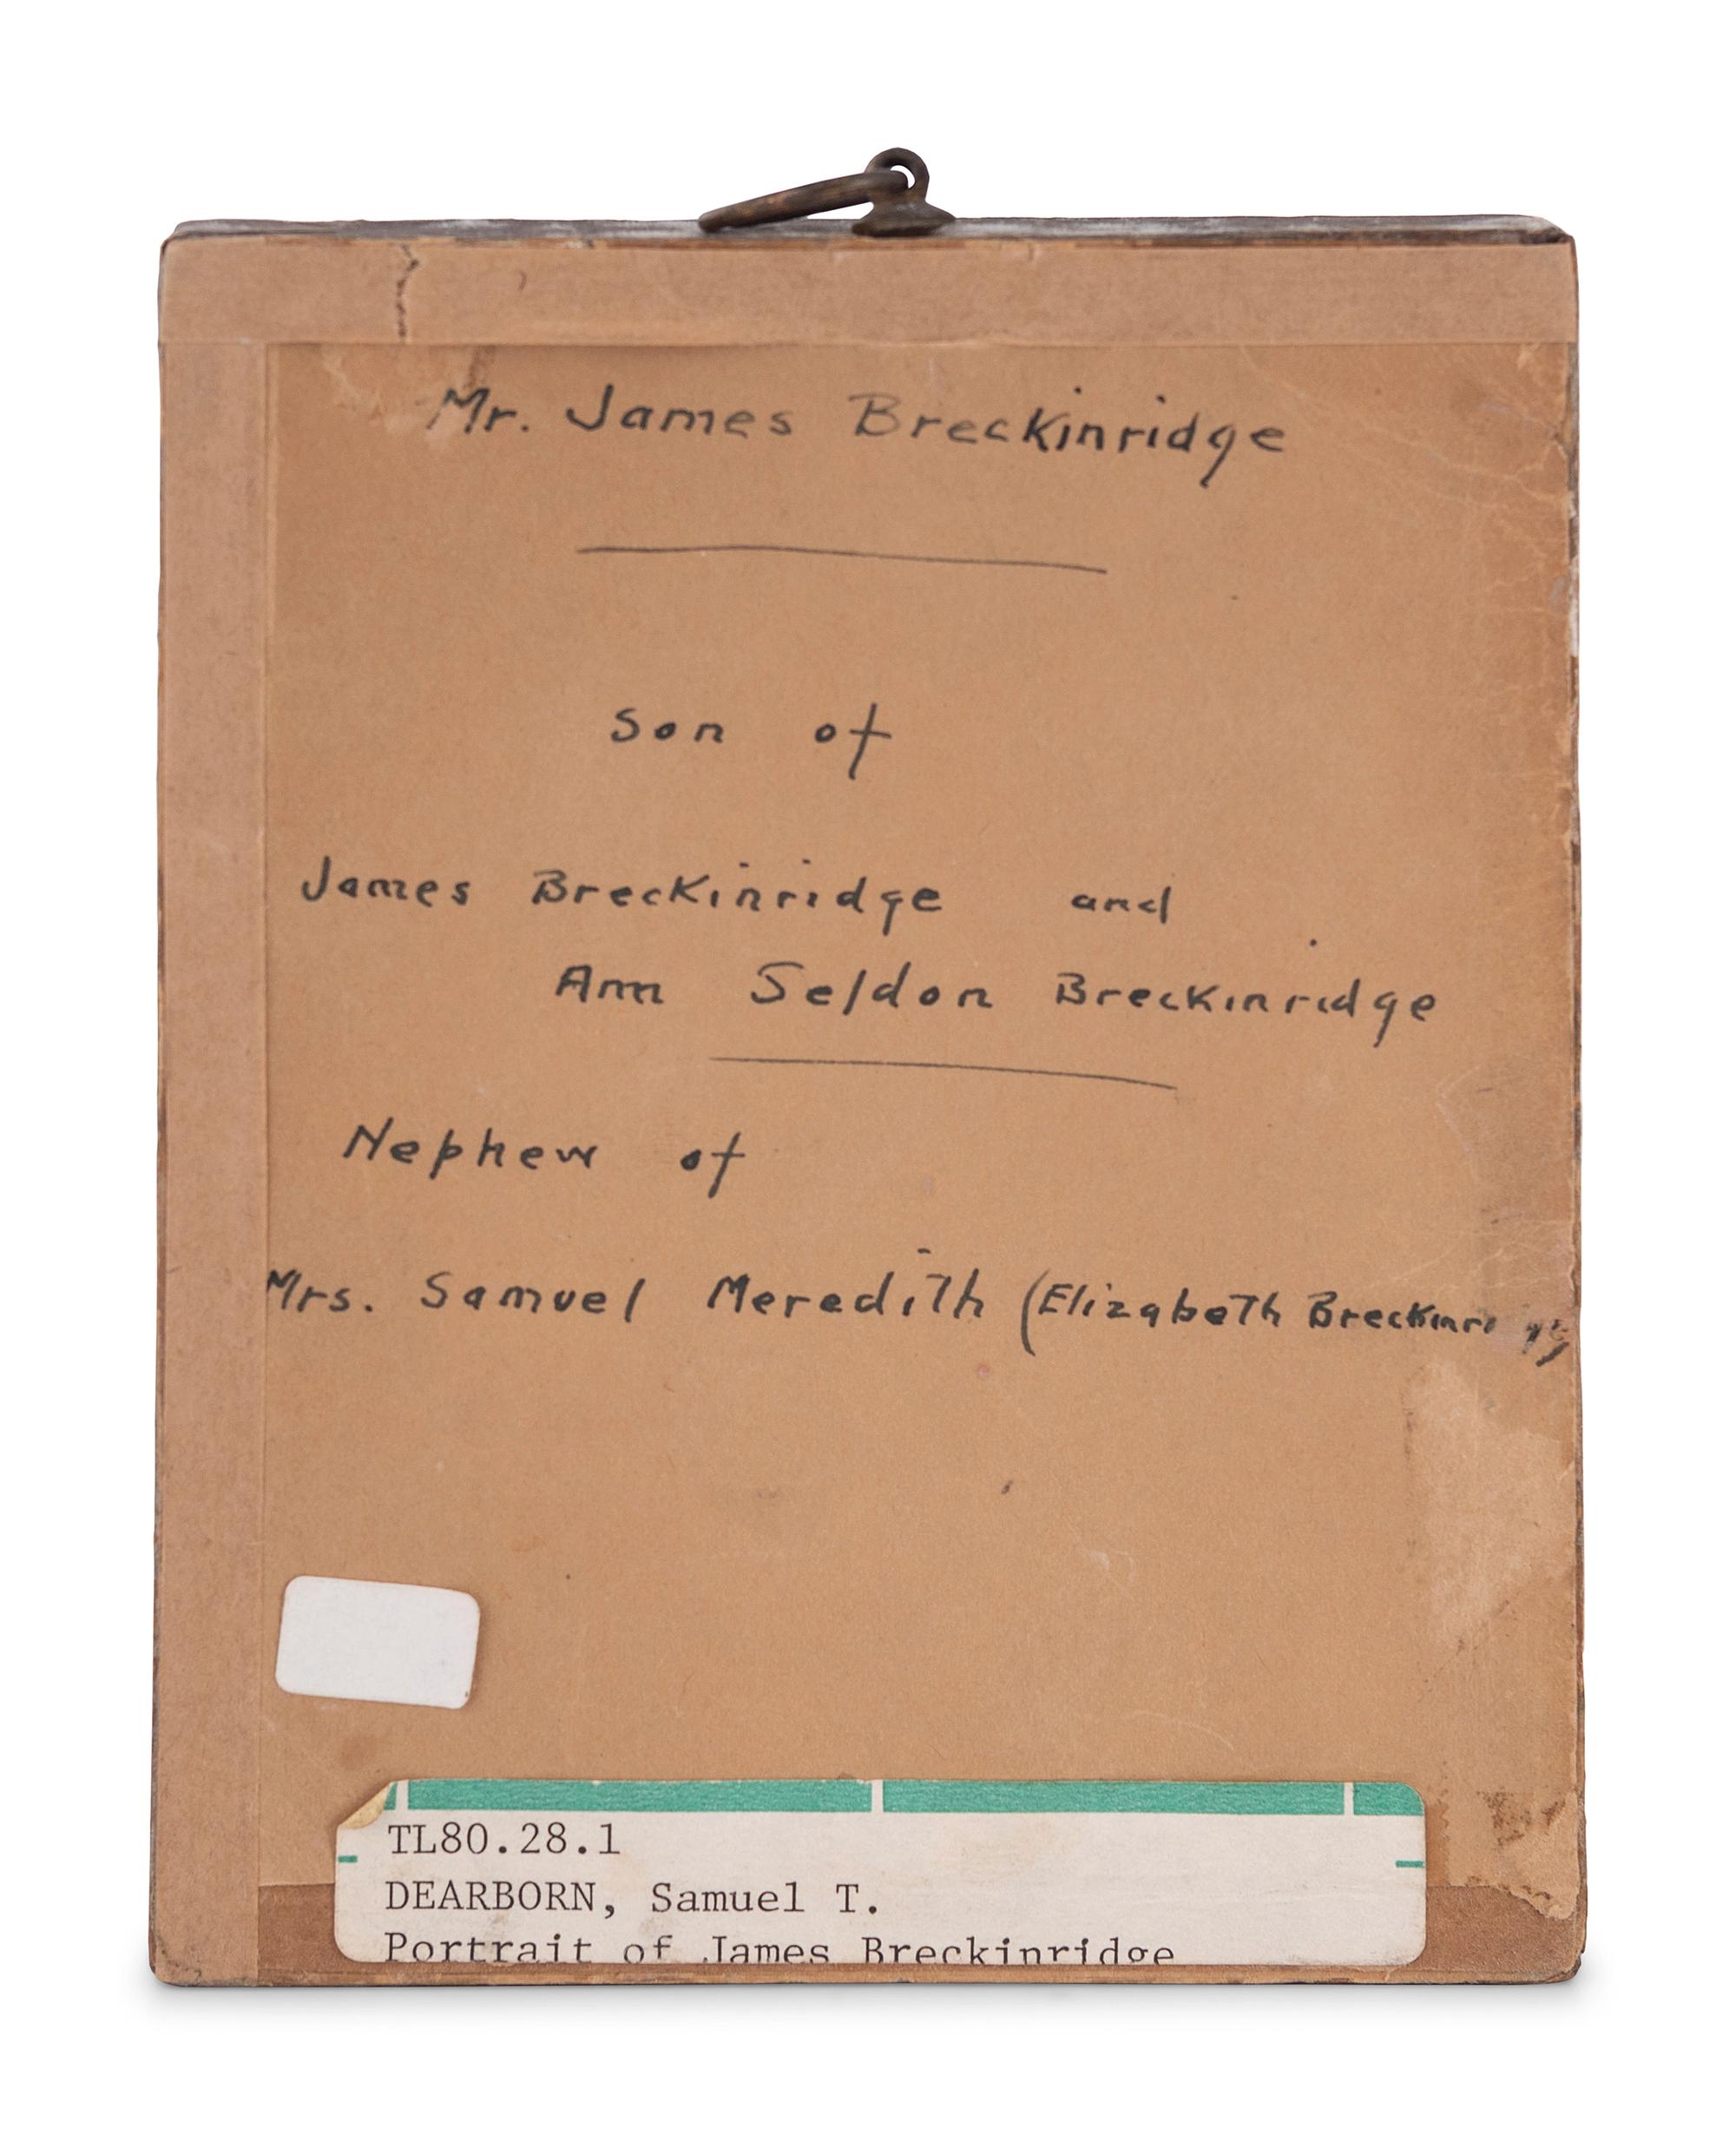 Mr. James Breckinridge
Son of
James Breckinridge and
Ann Seldon Breckinridge
Nephew of
Mrs. Samuel Meredith (Elizabeth Breckinridge)
TL80.28.1
DEARBORN, Samuel T.
Portrait of James Breckinridge